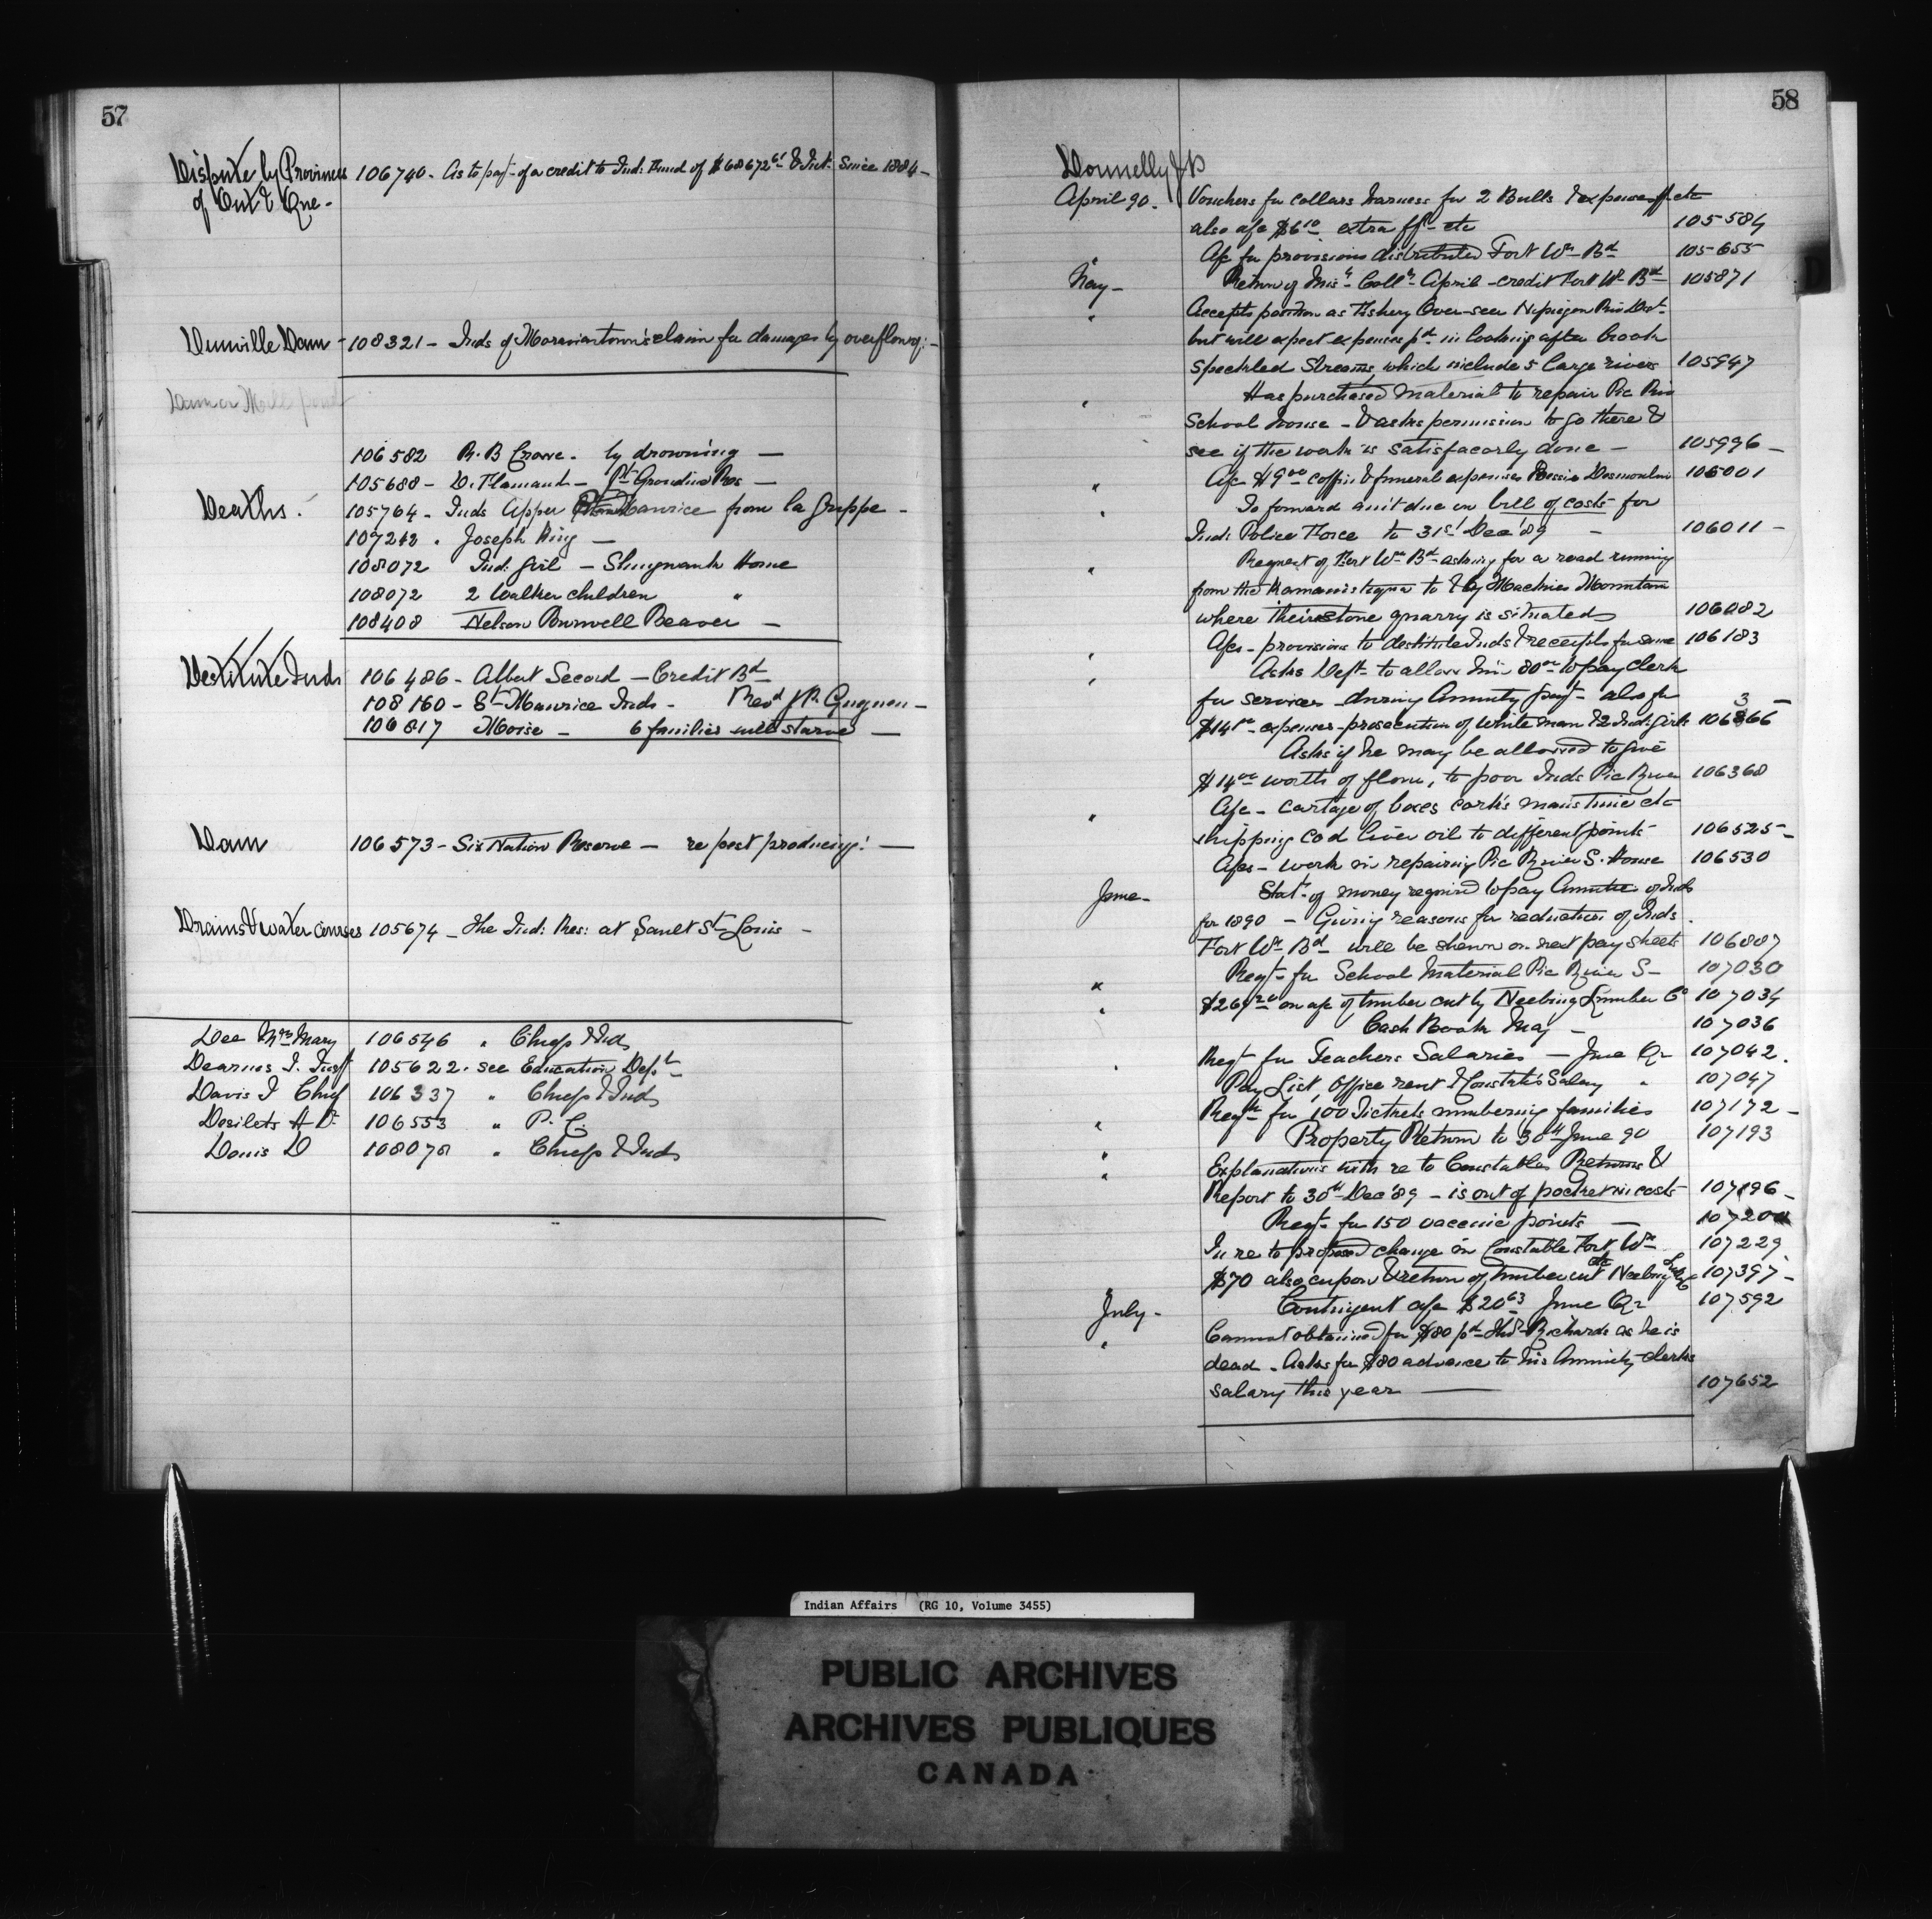 57
Dispute by Provinces
of Ont & Que -
106740 - As to pay- of a credit to Ind: Fund of $68672 & Int: Since 1884 -
Dunville Dam - 108321 - Inds of Moraviantown's claim for damages by overflowg: -
Dam or Mill pond
106582 R. B Crowe - by drowning -
105688 - D. Flamand - Pt Grondine Res -
Deaths.
105764 - Inds Upper St Maurice from la Grippe -
107242 . Joseph King -
108072 Ind: Girl - Shingwauk Home
108072 2 Walker children "
108408 Nelson Burwell Beaver -
Destitute Inds
106486 - Albert Secord - Credit Bd
108160 - St Maurice Inds - Revd J.P. Guguen -
106817 Moise - 6 families will starve -
Dam 106573 - Six Nation Reserve - re post producing: -
Drains & water courses 105674 - The Ind: Res: at Sault St Louis -
Dee Mrs Mary 106546 " Chiefs & Inds
Dearness J. Insp 105622 . see Education Dept
Davis J Chief 106337 " Chiefs & Inds
Desilets A Dr 106553 " P. C.
Davis D 108078 " Chiefs & Inds
58
Donnelly J P
April 90. Vouchers for collars harness for 2 Bulls & expenses ff etc
also a/c $6 extra ff- etc 105584
A/c for provisions distributed Fort Wm Bd 105655
May - Return of Mis Coll April - credit Fort Wm Bd 105871
" Accepts position as Fishery Over-seer Nipigon Riv Dist-
but will expect expenses pd in looking after brook
speckled Streams, which include 5 large rivers 105947
" Has purchased material to repair Pic Riv
School house - & asks permission to go there &
see if the work is satisfacorly done - 105996 -
" A/c $9.00 coffin & funeral expenses Desmoulin 106001
" To forward am't due on bill of costs for
Ind: Police Force to 31st Dec '89 - 106011 -
" Request of Fort Wm Bd asking for a road running
from the Kamanistiquia to & by Mackies Mountain
where their stone quarry is situated 106082
" A/cs - provisions to destitute Inds & receipts for same 106183
" Asks Dept to allow him 80.00 to pay clerk
for services during Annuity payt- also for
$14 - expenses - prosecution of white man & 2 Ind: girls 106366 -
Asks if he may be allowed to give
$14.00 worth of flour, to poor Inds Pic River 106368
" A/c - cartage of boxes corks mans time etc
shipping cod liver oil to different points - 106525 -
A/cs - work in repairing Pic River S. House 106530
June - Stat- of money required to pay Annuities of Inds
for 1890 - Giving reasons for reduction of Inds.
Fort Wm Bd will be shewn on next pay sheets 106887
" Reqt- for School Material Pic River S- 107030
" $269 on a/c of timber cut by Neebing Lumber Co 107034
Cash Book May - 107036
" Reqt for Teachers Salaries - June Qr 107042.
Pay List, Office rent & Constable's Salary " 107047
" Reqtn for 100 Tickets numbering families 107172 -
" Property Return to 30th June 90 107193
" Explanations with re to Constables Returns &
Report to 30th Dec '89 - is out of pocket in costs 107196 -
Reqt- for 150 vaccine points - 107200
In re to proposed change in Constable Fort Wm 107229
$70 also cupon & return of timber cut etc Neebing 107397 -
July - Contingent a/c $20.63 June Qr 107592
" Cannot obtain for $80 pd Thos Richards as he is
dead - Asks for $80 advance to his Annuity clerks
salary this year - 107652
Indian Affairs (RG 10, Volume 3455)
PUBLIC ARCHIVES
ARCHIVES PUBLIQUES
CANADA